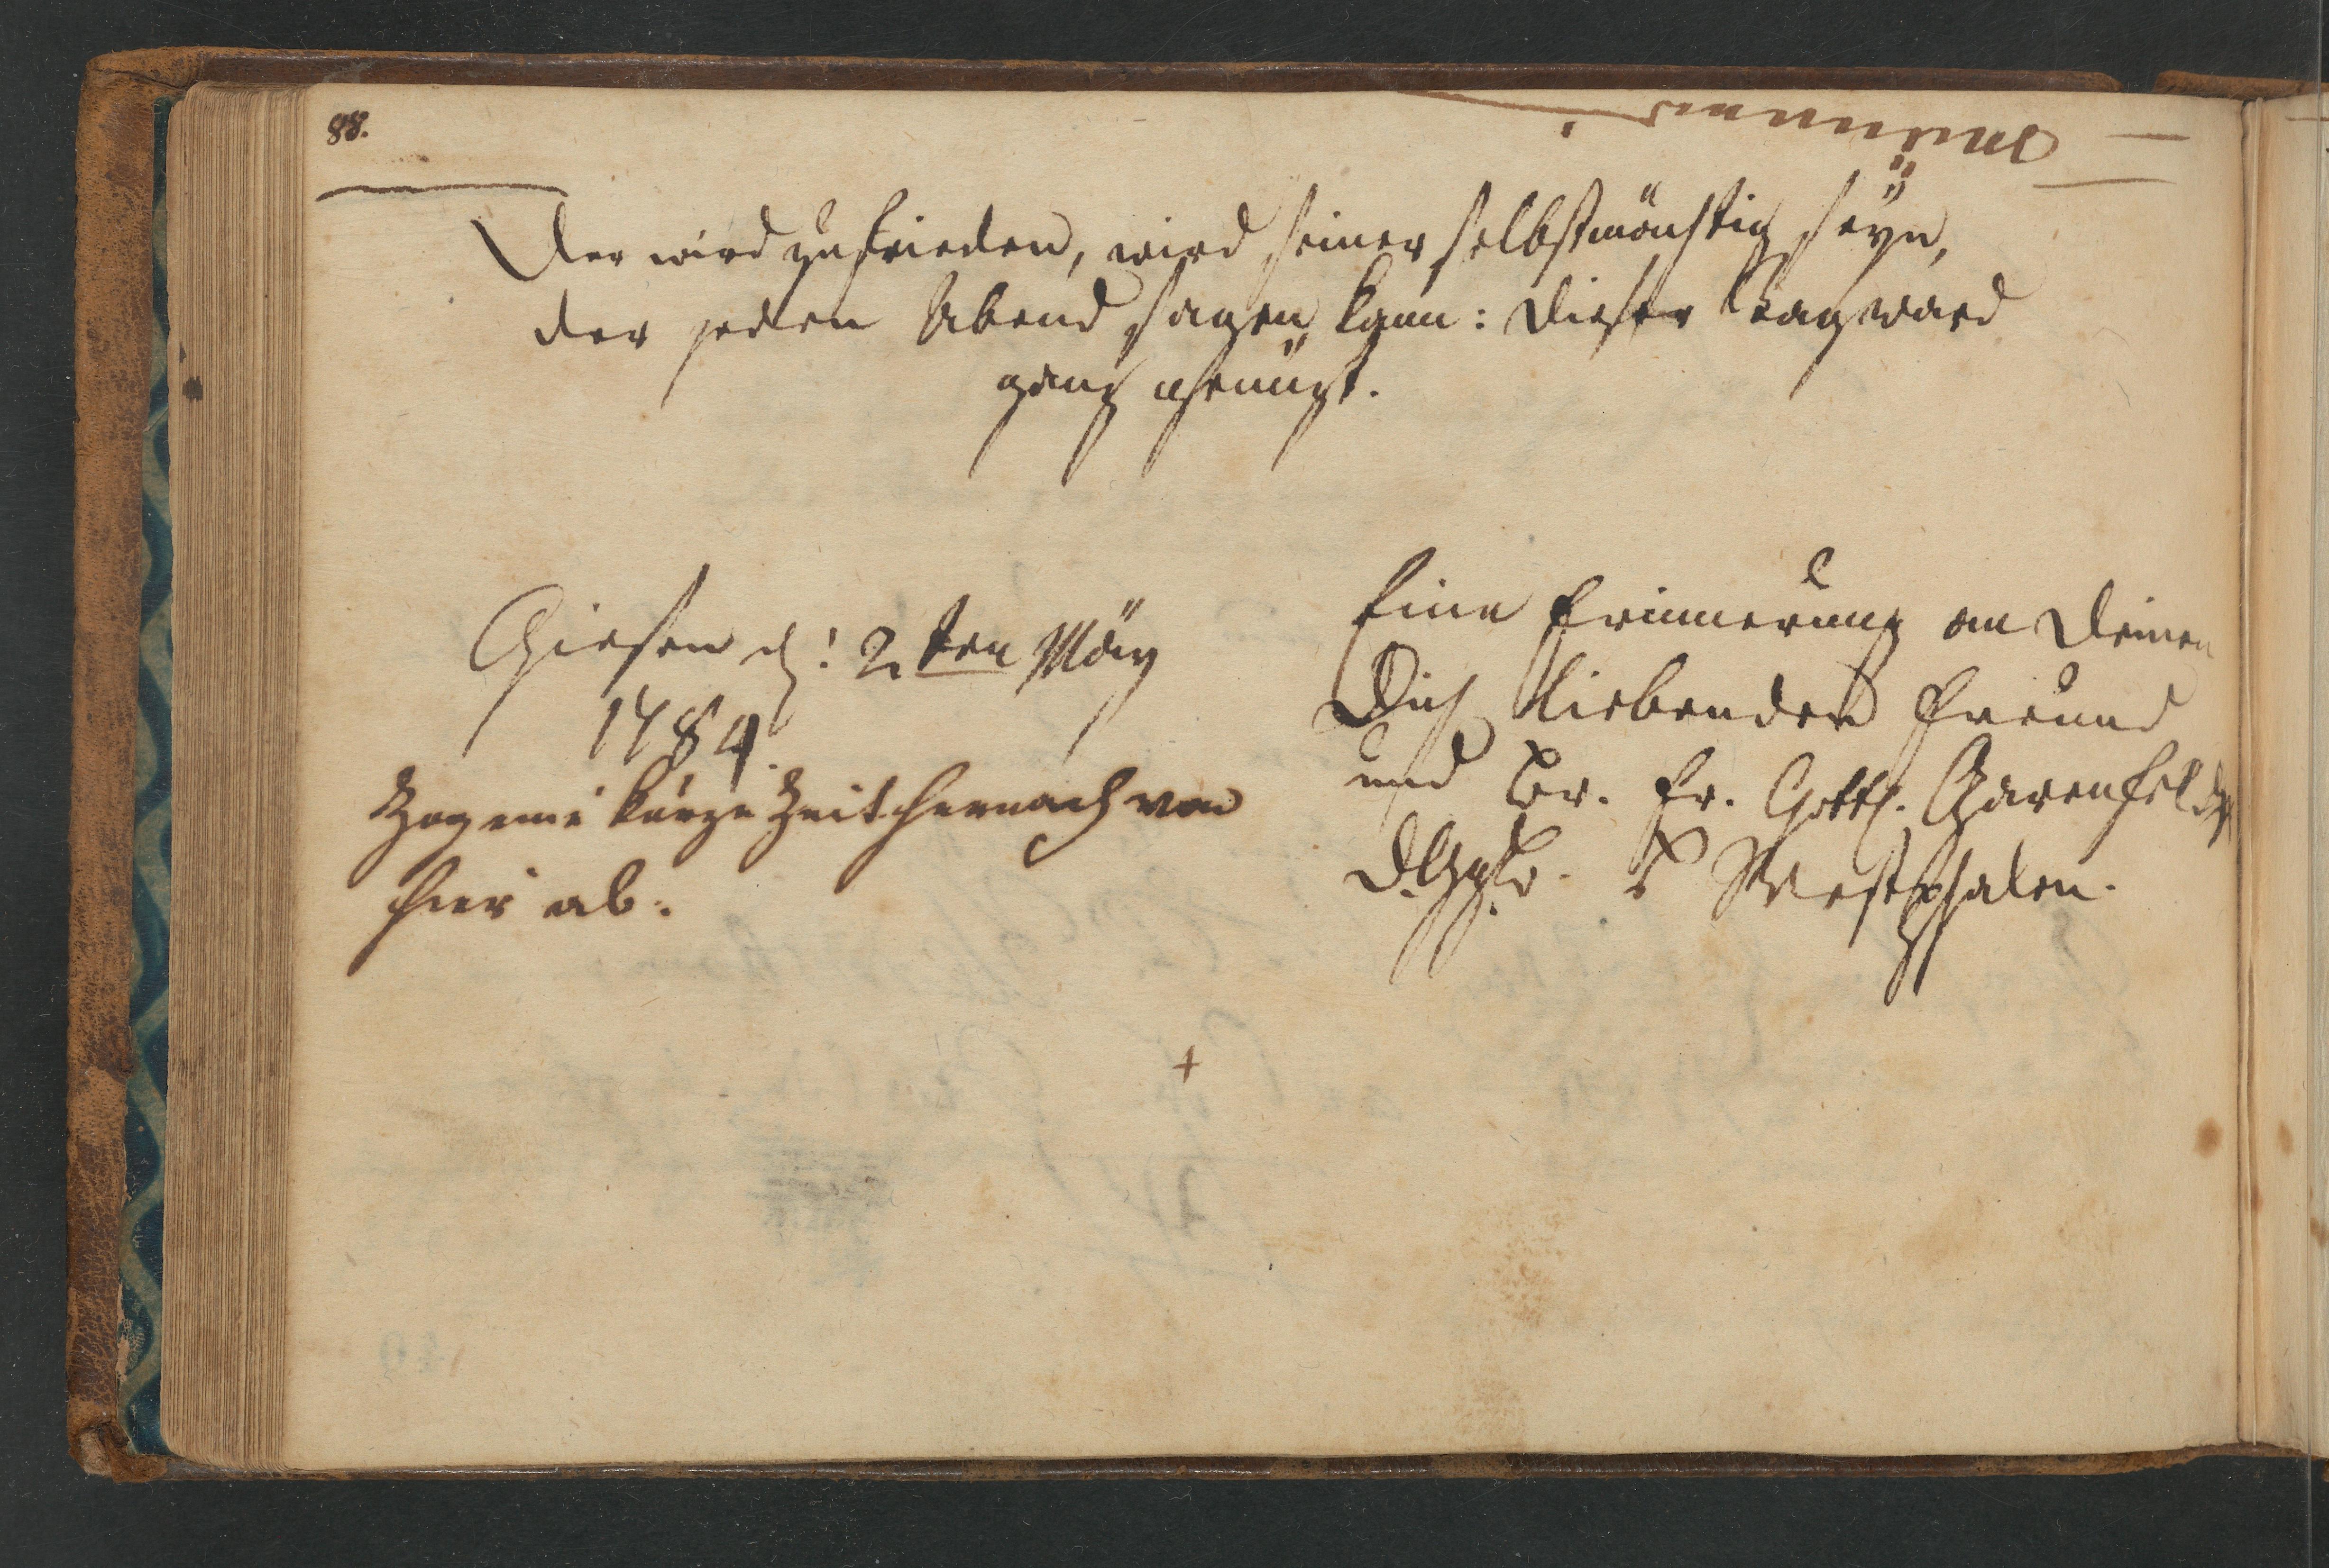 88.
Der wird zufrieden, wird seiner selbst mächtig seÿn,
der jeden Abend sagen kann: dieser Tag ward
ganz genüzt.
Giesen d: 2ten März
1784.
Zog eine kurze Zeit hernach von
hier ab.
Eine Erinnerung an Deinen
Dich liebenden Freund
und Br. Fr. Gottl. Garenfeld
d. Gglr. a Westphalen.
+